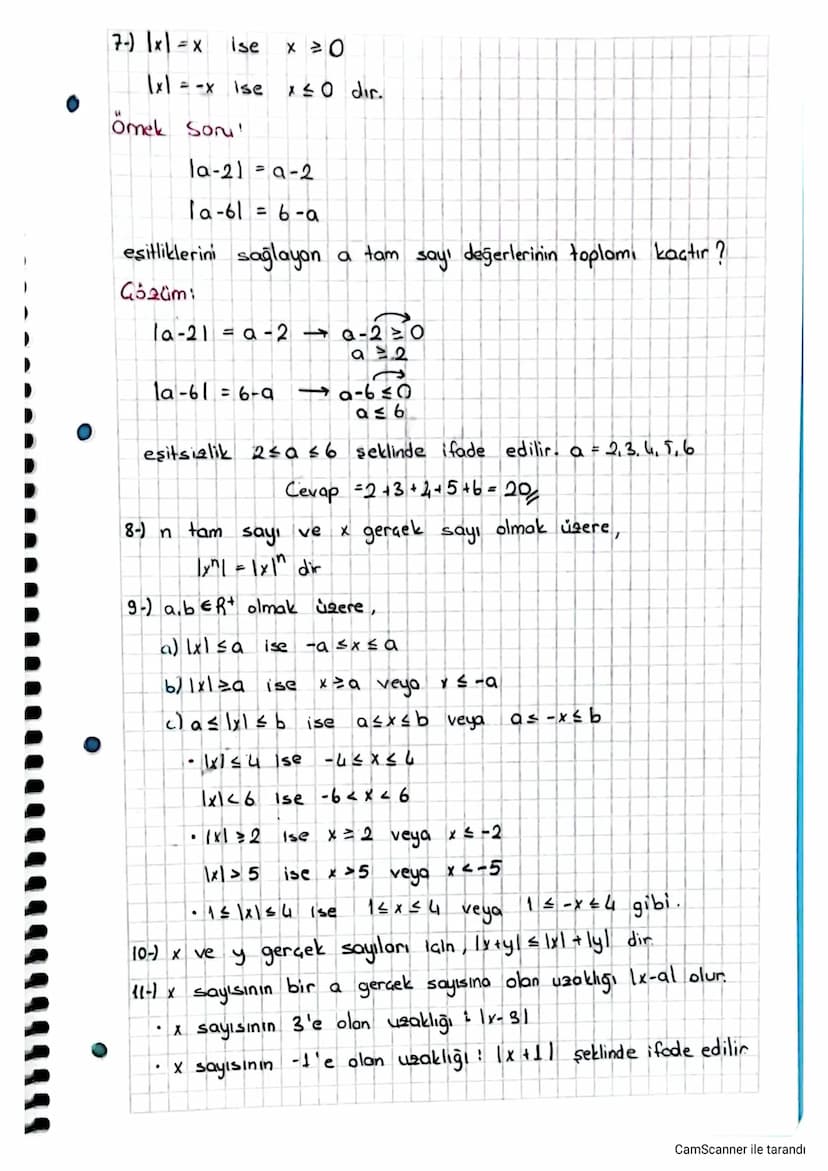 7-) |x| = x ise x ≥ 0
|x| = -x ise x ≤ 0 dır.
Örnek Soru:
|a-2| = a-2
|a-6| = 6-a
eşitliklerini sağlayan a tam sayı değerlerinin toplamı kaçtır?
Çözüm:
|a-2| = a-2 → a-2 ≥ 0
a ≥ 2
|a-6| = 6-a → a-6 ≤ 0
a ≤ 6
eşitsizlik 2 ≤ a ≤ 6 şeklinde ifade edilir. a = 2, 3, 4, 5, 6
Cevap = 2+3+4+5+6 = 20
8-) n tam sayı ve x gerçek sayı olmak üzere,
|xⁿ| = |x|ⁿ dir
9-) a,b ∈ R⁺ olmak üzere,
a) |x| ≤ a ise -a ≤ x ≤ a
b) |x| ≥ a ise x ≥ a veya x ≤ -a
c) a ≤ |x| ≤ b ise a ≤ x ≤ b veya a ≤ -x ≤ b
• |x| ≤ 4 ise -4 ≤ x ≤ 4
|x| < 6 ise -6 < x < 6
• |x| ≥ 2 ise x ≥ 2 veya x ≤ -2
|x| > 5 ise x > 5 veya x < -5
• 1 ≤ |x| ≤ 4 ise 1 ≤ x ≤ 4 veya 1 ≤ -x ≤ 4 gibi.
10-) x ve y gerçek sayıları için, |x+y| ≤ |x| + |y| dir
11-) x sayısının bir a gerçek sayısına olan uzaklığı |x-a| olur.
• x sayısının 3'e olan uzaklığı : |x-3|
• x sayısının -1'e olan uzaklığı : |x+1| şeklinde ifade edilir
CamScanner ile tarandı